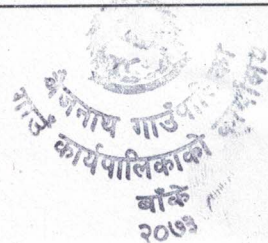 बैजनाथ गाउँपालिका
गाउँ कार्यपालिकाको कार्यालय
बाँके
२०७३